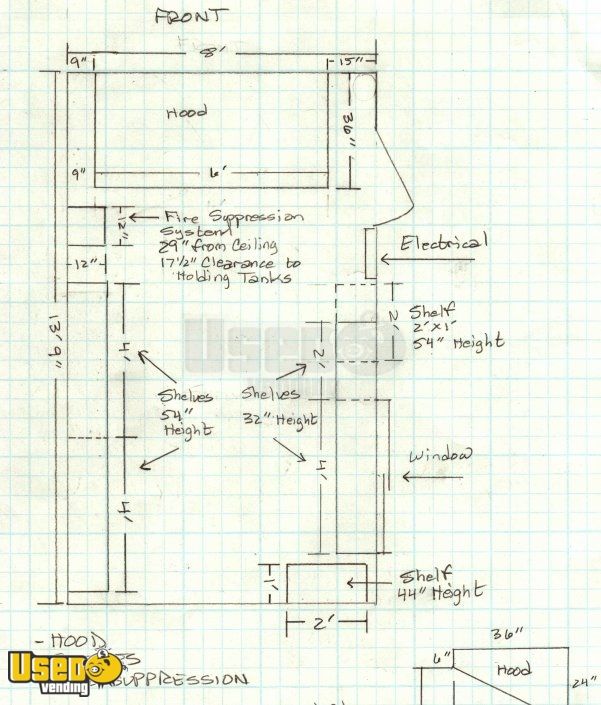 FRONT
8'
9"
15"
Hood
36"
9"
6'
12"
Fire Suppression
System
29" from Ceiling
17½" Clearance to
Holding Tanks
12"
Electrical
13'9"
4'
2'
Shelf
2'x1'
54" Height
2'
Shelves
54"
Height
Shelves
32" Height
Window
4'
4'
1'
Shelf
44" Height
2'
- HOOD
SUPPRESSION
USED
Vending
36"
6"
Hood
24"